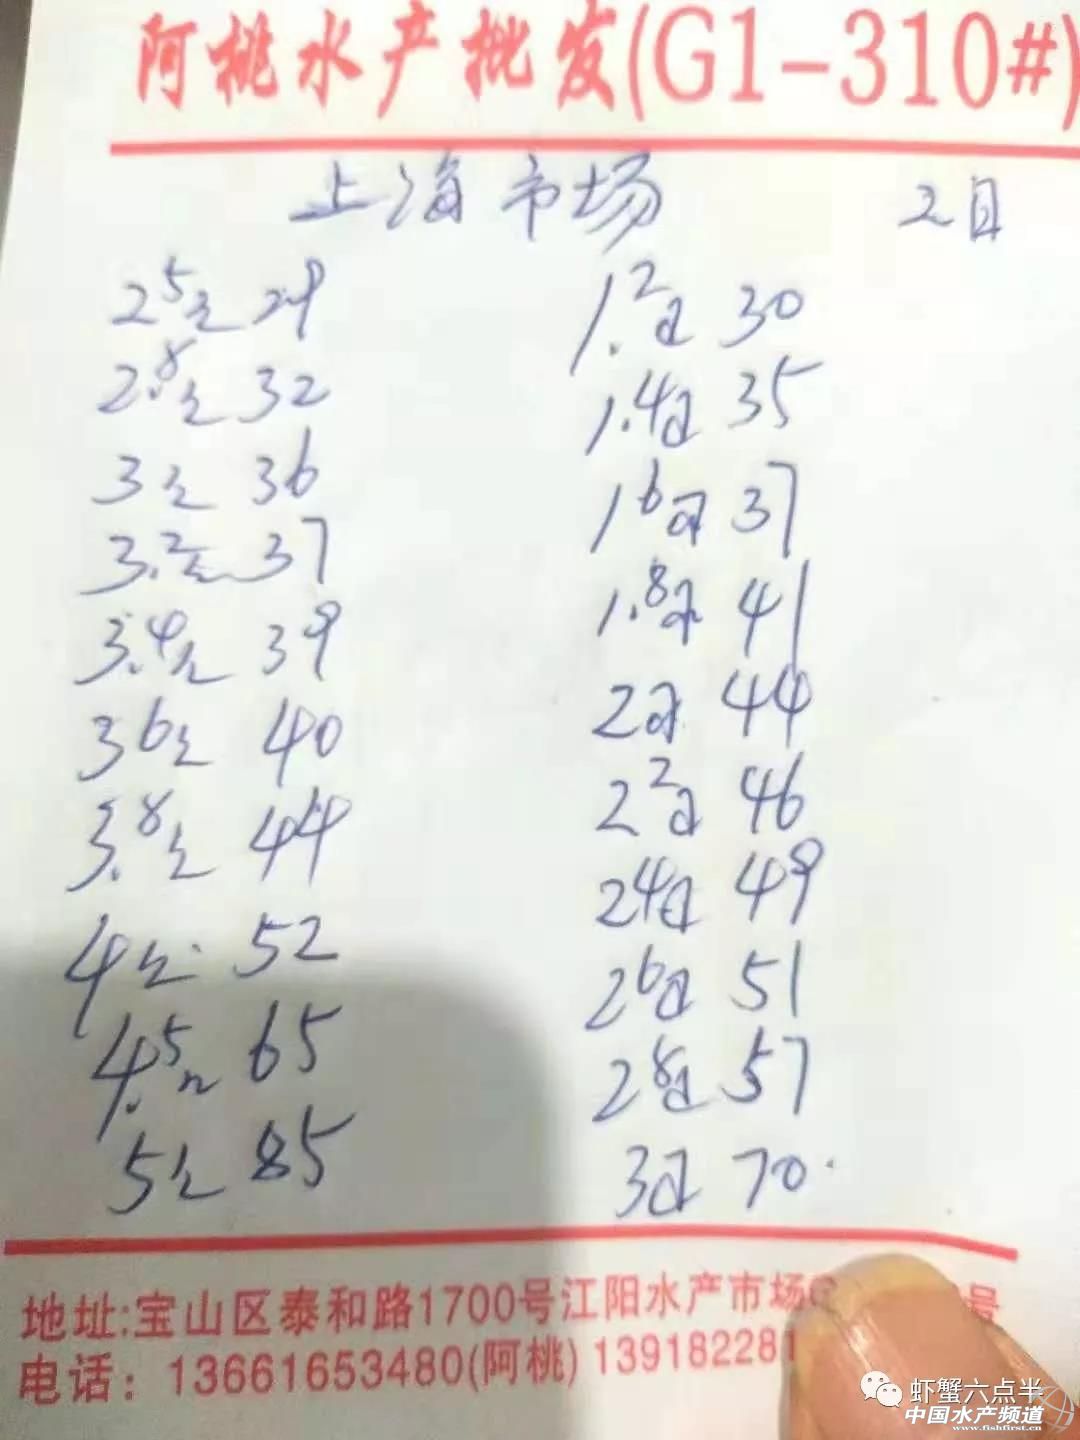 阿桃水产批发(G1-310#)
上海市场 2日
2.5公 29 1.2母 30
2.8公 32 1.4母 35
3公 36 1.6母 37
3.2公 37 1.8母 41
3.4公 39 2母 44
36公 40 22母 46
3.8公 44 24母 49
4公 52 26母 51
4.5公 65 28母 57
5公 85 3母 70
地址:宝山区泰和路1700号江阳水产市场 号
电话：13661653480(阿桃) 139182281
虾蟹六点半
中国水产频道
www.fishfirst.cn